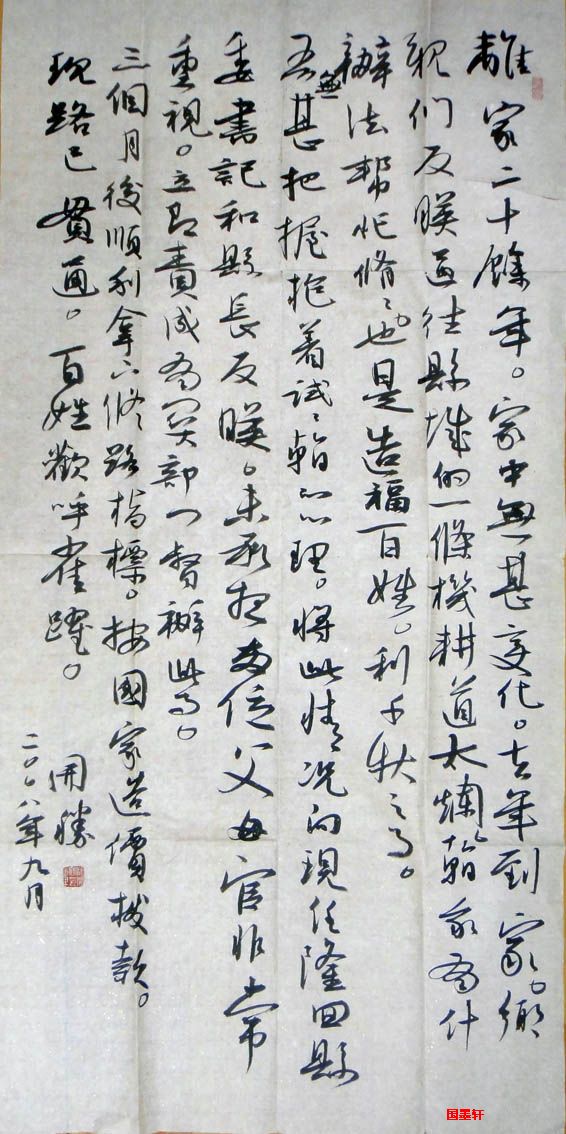 離家二十餘年。家中無甚变化。去年到家。鄉
親们反映通往縣城的一條機耕道太爛，翰我有什
辦法帮忙脩脩。也是造福百姓。利千秋之事。
吾無甚把握抱着试试㫪心理。將此情况向現任隆回縣
委書記和縣長反映。未承想两位父母官非常
重視。立即責成有関部门督辦此事。
三個月後順利拿下修路指標。按國家造價拨款。
現路已貫通。百姓歡呼雀躍。
開勝
二〇〇八年九月
国墨轩